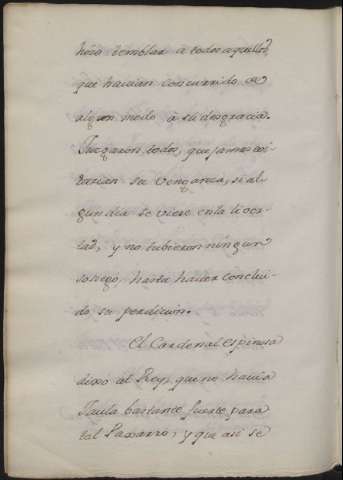 hizo temblar à todos aquellos,
que havian concurrido de
algun modo à su desgracia.
Juzgaron todos, que jamas evi-
tarian su venganza, si al-
gun dia se viese en la liver-
tad, y no tubieron ningun
sosiego, hasta haver conclui-
do su perdicion.
El Cardenal Espinosa
dixo al Rey, que no havia
Jaula bastante fuerte para
tal Paxarro, y que asi se